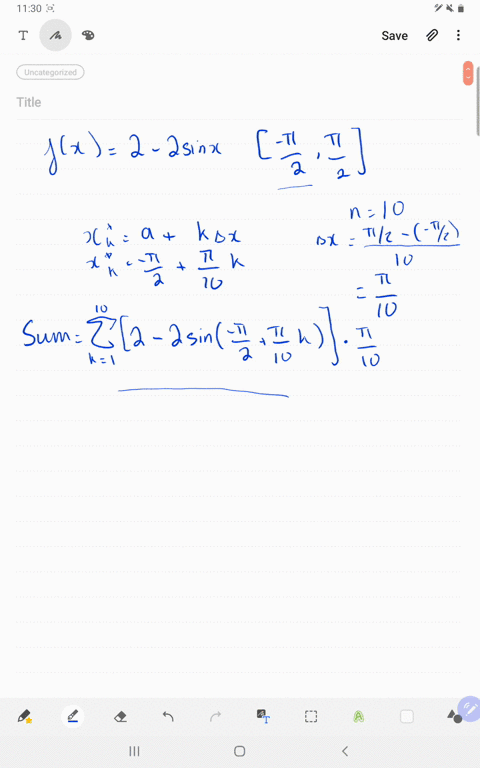 11:30
T Save
Uncategorized
Title
f(x) = 2 - 2sinx [-π/2, π/2]
n = 10
x*k = a + kΔx
Δx = π/2 - (-π/2) / 10
x*k = -π/2 + π/10 k
= π/10
Sum = Σ k=1 10 [2 - 2sin(-π/2 + π/10 k)] · π/10